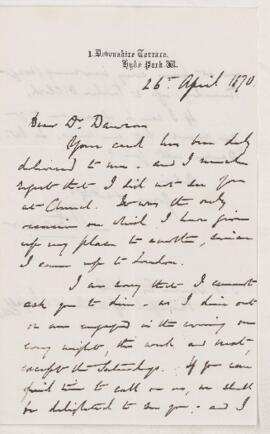 1. Devonshire Terrace,
Hyde Park W.
26th April 1870.
Dear Dr. Dawson
Your card has been duly
delivered to me - and I much
regret that I did not see you
at Church. It was the only
occasion on which I have given
up my place to another, since
I came up to London.
I am sorry that I cannot
ask you to dine - as I dine out
or am engaged in the evening on
every night, this week and next,
except the Saturdays. If you can
find time to call on us, we shall
be delighted to see you - and I